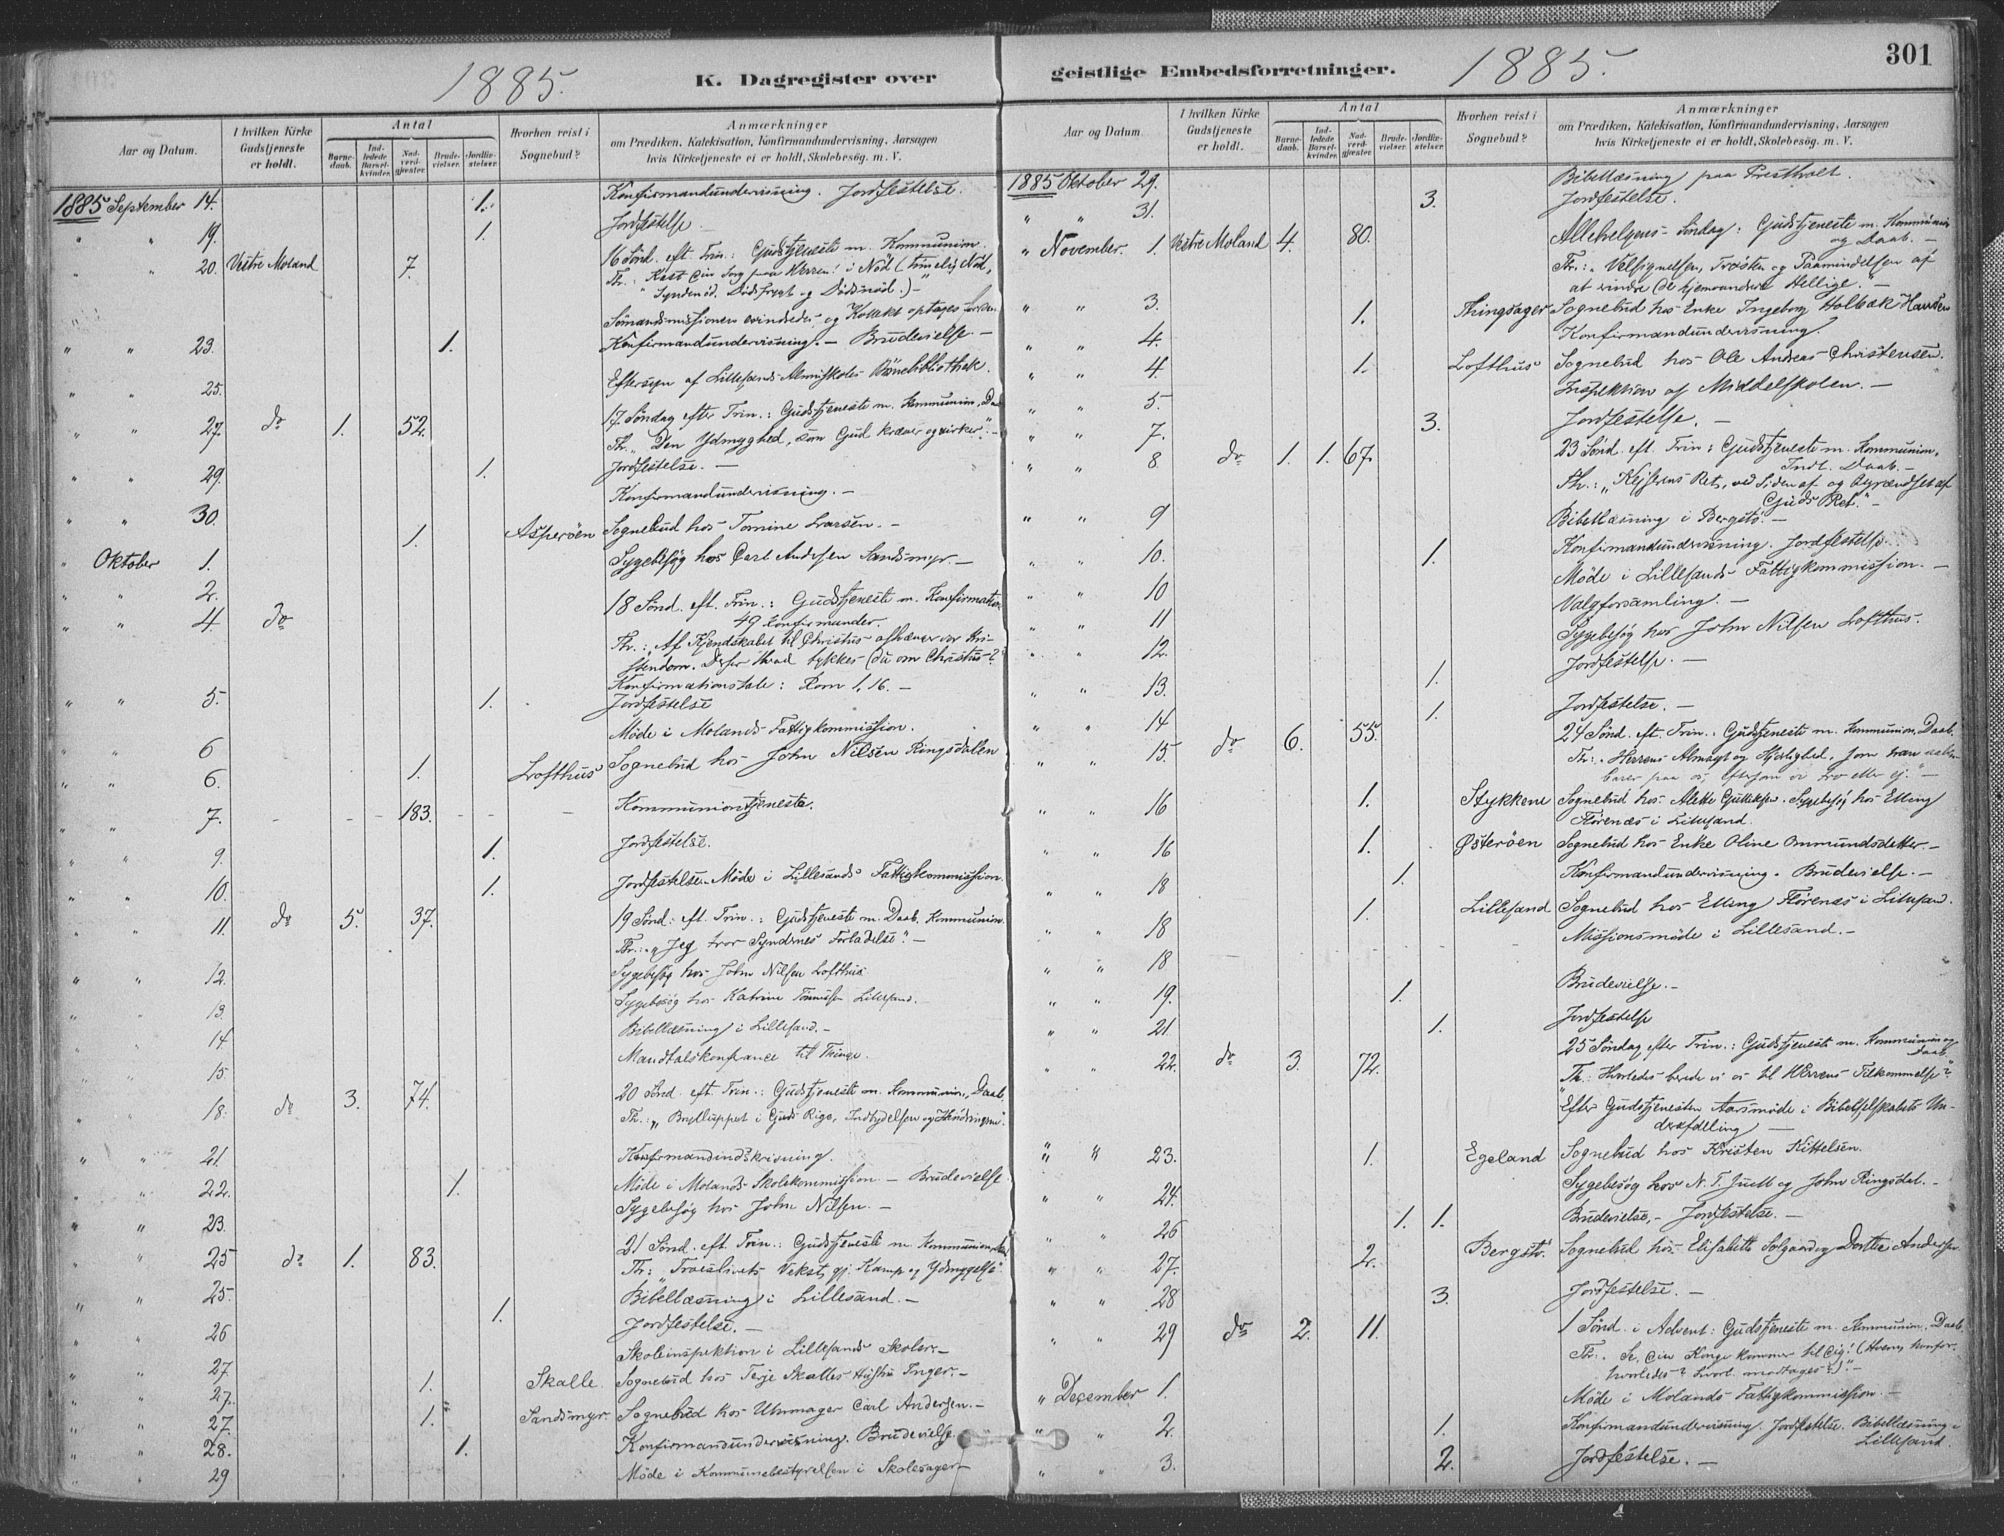 301
1885.
K. Dagregister over
geistlige Embedsforretninger.
1885.
Aar og Datum.
I hvilken Kirke Gudstjeneste er holdt.
Antal
Barnedaab.
Indledede Barselkvinder.
Nadverdgjester.
Brudevielser.
Jordfæstelser.
Hvorhen reist i Sognebud?
Anmærkninger
om Prædiken, Katekisation, Konfirmandundervisning, Aarsagen
hvis Kirketjeneste ei er holdt, Skolebesøg. m. V.
1885 September 14. 1. Konfirmandundervisning. Jordfestelse.
" " 19. 1. Jordfestelse
" " 20. Vestre Moland 7. 16 Sönd. eft. Trin.: Gudstjeneste m. Kommunion.
Th.: "Kast din Sorg paa Herren! i Nöd (timelig Nöd,
Syndenöd, Dödsfrygt og Dödsnöd.)-
Sömandsmissionens og Kollekt optages
" " 23. 1. Konfirmandundervisning. - Brudevielse. -
" " 25. Eftersyn af Lillesands Almuskoles Börnebibliothek.
" " 27. do 1. 52. 17. Söndag efter Trin.: Gudstjeneste m. Kommunion, Daab
Th. "Den Ydmyghed, som Gud kræver og virker". -
" " 29. 1. Jordfestelse. -
" " 30. Konfirmandundervisning. -
1. Asperöen Sognebud hos Tomine Larsen. -
" Oktober 1. Sygebesög hos Carl Andersen Sandsmyr. -
" " 2.
" " 4. do 18 Sönd. eft. Trin.: Gudstjeneste m. Konfirmation
49 Konfirmander.
Th.: Af Kjendskabet til Christus afhænger vor Kri-
stendom. Derfor: Hvad tykkes du om Christus?
Konfirmationstale: Rom 1, 16. -
" " 5. 1. Jordfestelse
Möde i Molands Fattigkommission.
" " 6
" " 6. 1. Lofthus Sognebud hos John Nilsen Ringsdalen
" " 7. 183. Kommuniontjeneste.
" " 9. 1. Jordfestelse.
" " 10. 1. Jordfestelse. Möde i Lillesands Fattigkommission.
" " 11. do 5. 37. 19 Sönd. eft. Trin.: Gudstjeneste m. Daab, Kommunion.
Th.: "Jeg tror Syndernes Forladelse". -
" " 12. Sygebesög hos John Nilsen Lofthus.
" " 13. Sygebesög hos Katrine Lillesand.
" " 14. Bibellæsning i Lillesand. -
" " 15. Mandtalskonferance til Thinge.
" " 18. do 3. 74. 20 Sönd. eft. Trin.: Gudstjeneste m. Kommunion, Daab.
Th.: "Brylluppet i Guds Rige, Indbydelsen og
" " 21. Konfirmandindskrivning.
" " 22. 1. Möde i Molands Skolekommission - Brudevielse.
" " 23. Sygebesög hos John Nilsen. -
" " 25 do 1. 83. 21 Sönd. eft. Trin.: Gudstjeneste m. Kommunion,
Th.: "Troeslivets Vekst gj. Kamp og Ydmygelse"
" " 25. Bibellæsning i Lillesand. -
" " 26 1. Jordfestelse. -
" " 27. Skoleinspektion i Lillesands Skoler. -
" " 27. 1. Skalle. Sognebud hos Terje Skalles Hustru Inger. -
" " 27. 1. Sandsmyr. Sognebud hos Uhrmager Carl Andersen. -
" " 28. 1. Konfirmandundervisning. Brudevielse.
" " 29 Möde i Kommunebestyrelsen i Skolesager -
Aar og Datum.
I hvilken Kirke Gudstjeneste er holdt.
Antal
Barnedaab.
Indledede Barselkvinder.
Nadverdgjester.
Brudevielser.
Jordfæstelser.
Hvorhen reist i Sognebud?
Anmærkninger
om Prædiken, Katekisation, Konfirmandundervisning, Aarsagen
hvis Kirketjeneste ei er holdt, Skolebesøg. m. V.
1885 Oktober 29. Bibellæsning paa Prestholt.
" " 31. 3. Jordfestelse.
" November. 1. Vestre Moland 4. 80. Allehelgens-Söndag: Gudstjeneste m. Kommunion
og Daab. -
Th.: "Velsignelsen, Trösten og Paamindelsen af
at erindre de hjemvandrede Hellige."
" " 3. 1. Thingsager Sognebud hos Enke Ingeborg Holbæk Hansen
" " 4. Konfirmandundervisning.
" " 4. 1. Lofthus Sognebud hos Ole Andreas Christensen.
" " 5. Inspektion af Middelskolen. -
" " 7. 3. Jordfestelse. -
" " 8. do 1. 1. 67. 23 Sönd. eft. Trin.: Gudstjeneste m. Kommunion,
Indl. Daab. -
Th.: "Kejserens Ret, ved Siden af og begrændset af
Guds Ret." -
" " 9 Bibellæsning i Bergstö. -
" " 10. 1. Konfirmandundervisning. Jordfestelse.
" " 10 Möde i Lillesands Fattigkommission. -
" " 11 Valgforsamling. -
" " 12. Sygebesög hos John Nilsen Lofthus.
" " 13. 1. Jordfestelse. -
" " 14 1. Jordfestelse. -
" " 15. do 6. 55. 24 Sönd. eft. Trin.: Gudstjeneste m. Kommunion, Daab.
Th.: "Herrens Almagt og Kjærlighed, som han
paa os, eftersom vi tro eller ej." -
" " 16 1. Stykkene Sognebud hos Alette Sygebesög hos Elling
Flörenæs i Lillesand.
" " 16 1. Østeröen Sognebud hos Enke Oline Ommundsdatter. -
" " 18 1. Konfirmandundervisning. Brudevielse. -
" " 18 1. Lillesand Sognebud hos Elling Flörenæs i Lillesand.
" " 18 Missionsmöde i Lillesand. -
" " 19. 1. Brudevielse. -
" " 21 1. Jordfestelse
" " 22. do 3. 72. 25 Söndag efter Trin.: Gudstjeneste m. Kommunion og
Daab.
Th.: Hvorledes berede vi os til Herrens Tilkommelse"?
Efter Gudstjenesten Aarsmöde i Bibelselskabets Un-
derafdeling -
" " 23. 1. Egeland Sognebud hos Kristen Kittelsen.
" " 24. Sygebesög hos N. T. Juell og John Ringsdal. -
" " 26 1. 1. Brudevielse, - Jordfestelse. -
" " 27. 2. Bergstö. Sognebud hos Elisabeth Solgaard og Dorthe Andersen.
" " 28 3. Jordfestelse. -
" " 29 do 2. 11. 1 Sönd. i Advent: Gudstjeneste m. Kommunion, Daab.
Th.: "Se, din Konge kommer til dig! (Hvem, hvorfor,
hvorledes? hvorl. modtages?)" -
" December 1. Möde i Molands Fattigkommission. -
" " 2. 1. Konfirmandundervisning. Jordfestelse. Bibellæsning i
Lillesand.
" " 3. 2. Jordfestelse. -